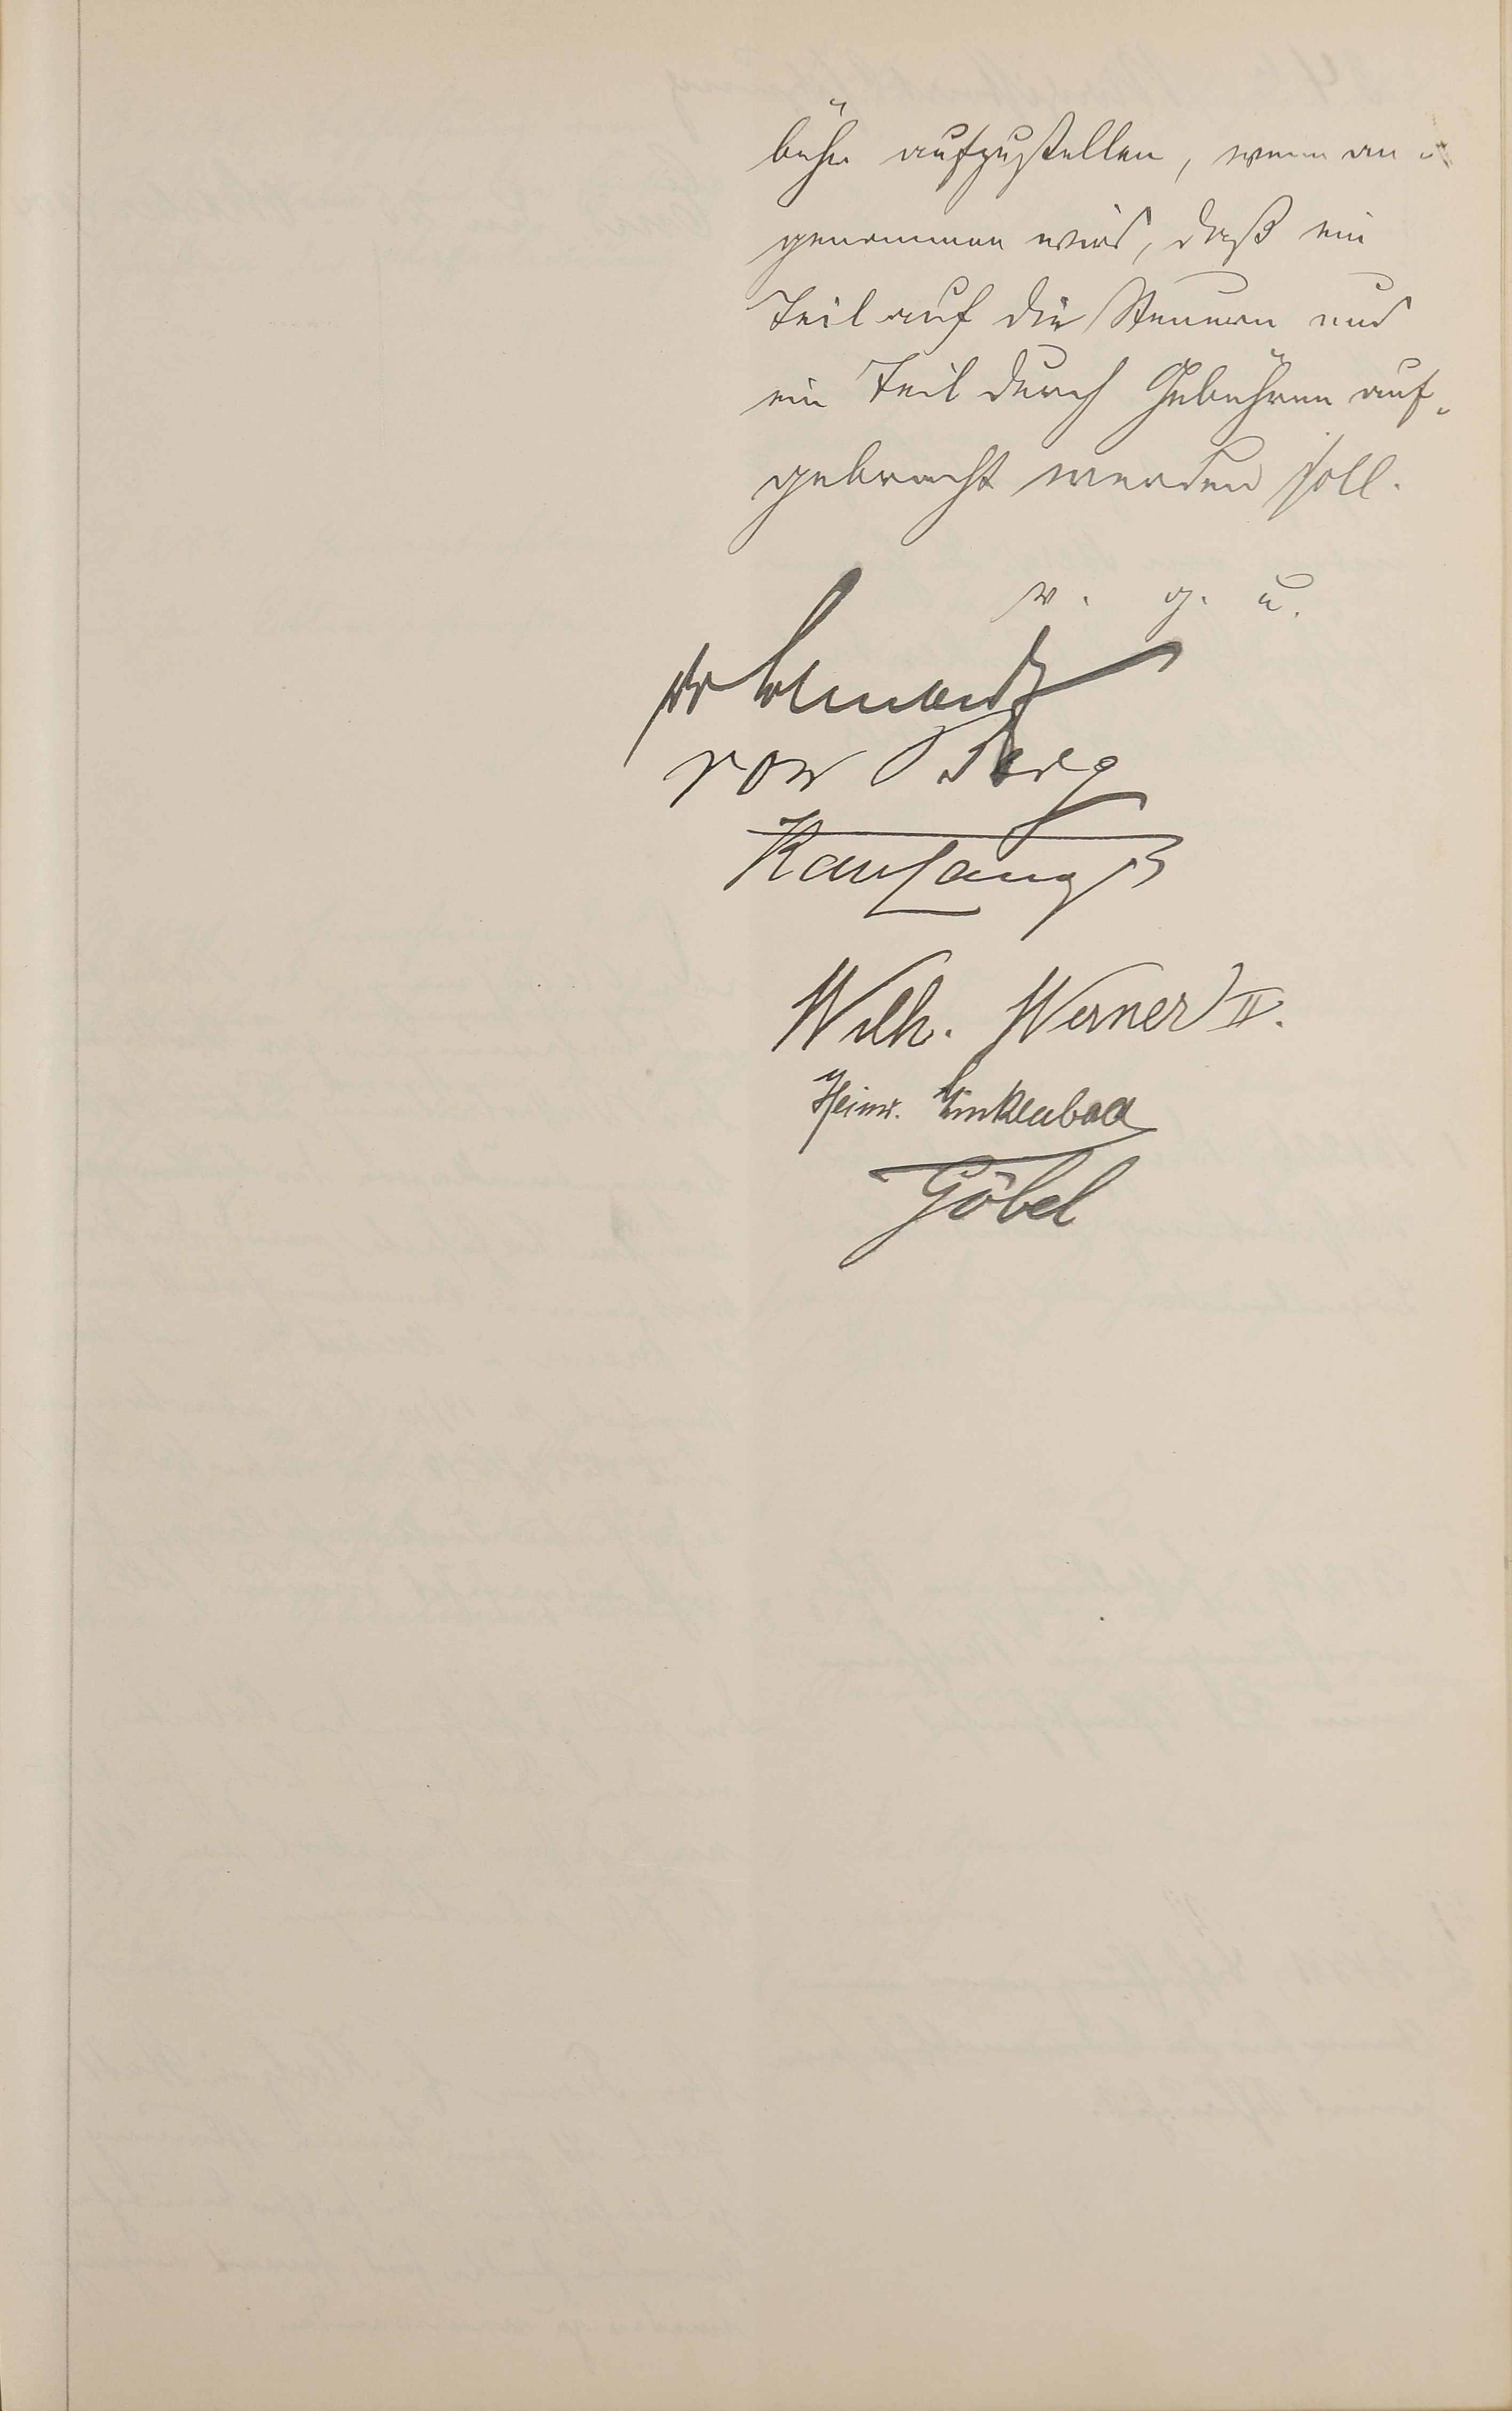 bühr aufzustellen, wenn an-
genommen wird, daß ein
Teil auf die Steuern und
ein Teil durch Gebühren auf-
gebracht werden soll.
v. g. u.
von Berg
Wilh. Werner II.
Heinr. Linkenbach
Göbel